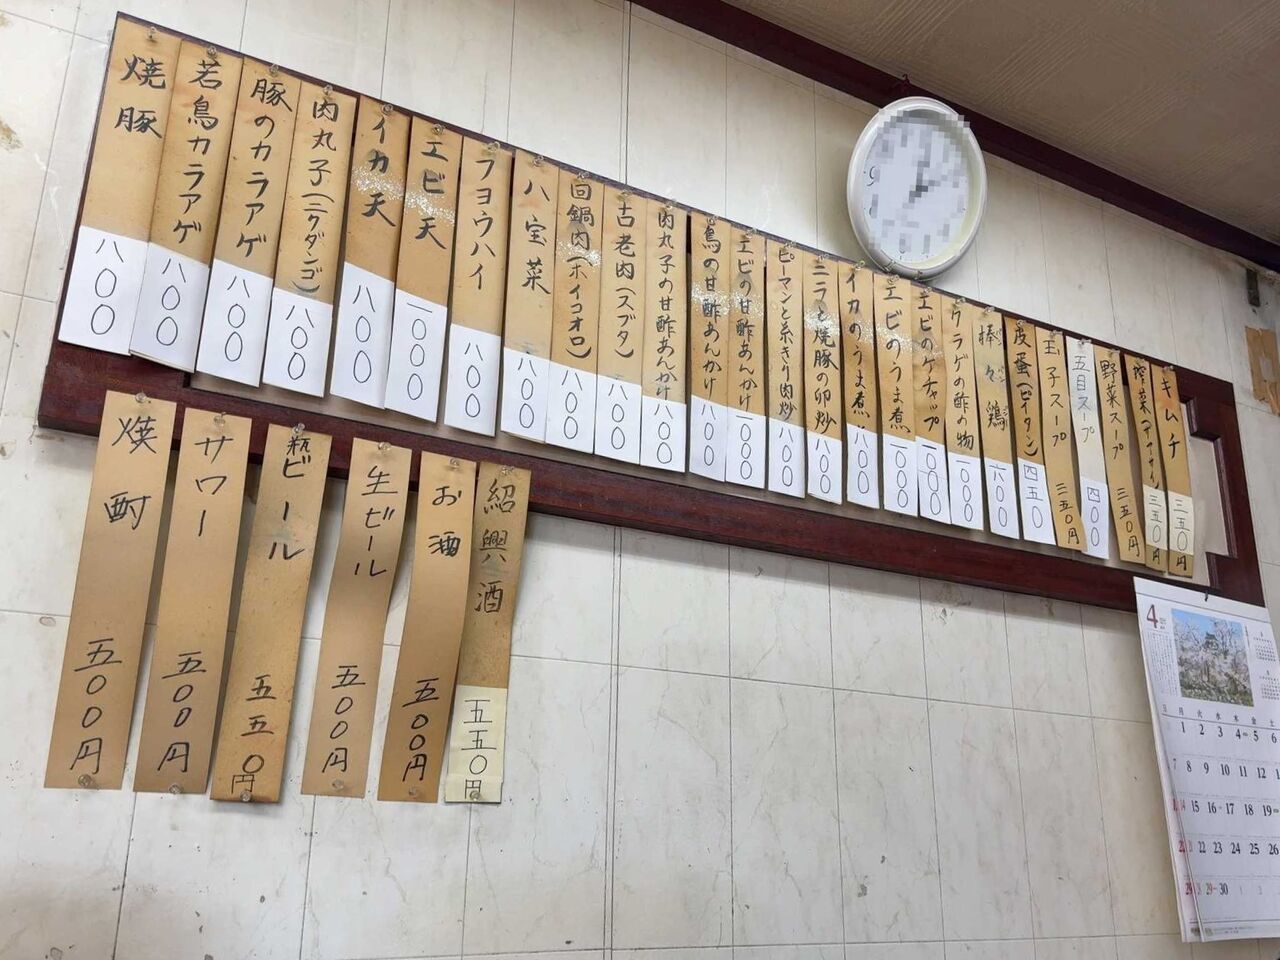 焼豚 八〇〇
若鳥カラアゲ 八〇〇
豚のカラアゲ 八〇〇
肉丸子(ニクダンゴ) 八〇〇
イカ天 八〇〇
エビ天 一〇〇〇
フヨウハイ 八〇〇
八宝菜 八〇〇
回鍋肉(ホイコオロ) 八〇〇
古老肉(スブタ) 八〇〇
肉丸子の甘酢あんかけ 八〇〇
鳥の甘酢あんかけ 八〇〇
エビの甘酢あんかけ 一〇〇〇
ピーマンと糸きり肉炒 八〇〇
ニラと焼豚の卵炒 八〇〇
イカのうま煮 八〇〇
エビのうま煮 一〇〇〇
エビのケチャップ 一〇〇〇
クラゲの酢の物 一〇〇〇
棒々鶏 六〇〇
皮蛋(ピイタン) 四五〇
玉子スープ 三五〇円
五目スープ 四〇〇
野菜スープ 三五〇円
搾菜(ザーサイ) 三五〇円
キムチ 三五〇円
焼酎 五〇〇円
サワー 五〇〇円
瓶ビール 五五〇円
生ビール 五〇〇円
お酒 五〇〇円
紹興酒 五五〇円
4
日 月 火 水 木 金 土
1 2 3 4 5 6
7 8 9 10 11 12
14 15 16 17 18 19
21 22 23 24 25 26
29 30